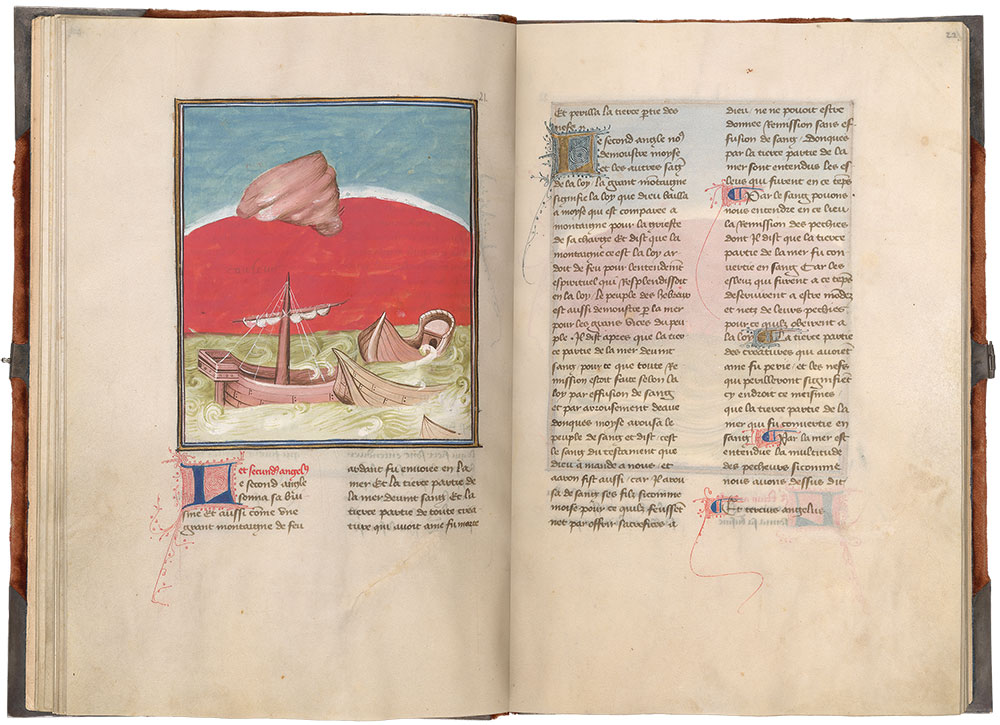 21
Et secund9 angel9
Le second angle
sonna sa bui
sine et aussi come une
grant montaigne de feu
ardant fu envoiee en la
mer Et la tierce partie de
la mer devint sang Et la
tierce partie de toute crea
ture qui avoit ame fu morte
22
Et perilla la tierce ptie des
nefs
Le second angle no9
demoustre moyse
et les autres sag
de la loy. la grant motaigne
signifie la loy que dieu bailla
a moyse qui est comparee a
montaigne pour la griefte
de sa charge Et dist que la
montaigne cest la loy ar
doit de feu pour lentendemt
espirituel qui Resplendissoit
en la loy. Le peuple des hebreux
est aussi demoustre p la mer
pour les grans vices du peu
ple. Il dist apres que la tier
ce partie de la mer devint
sang pour ce que toute Re
mission estoit faite selon la
loy par effusion de sang
et par arrousement deaue
donques moyse arousa le
peuple de sang et dist. cest
le sang du testament que
dieu a mande a nous. et
aaron fist aussi. car il arou
sa de sang ses filz sicomme
moise pour ce quilz feussent
not par offrir sacrefices a
dieu. ne ne pouoit estre
donnee Remission sans ef
fusion de sang. Donques
par la tierce partie de la
mer sont entendus les es
leus qui furent en ce teps
Par le sang pouons
nous entendre en ce lieu
la Remission des pechies
dont il dist que la tierce
partie de la mer fu con
vertie en sang Car les
esleus qui furent a ce teps
desservirent a estre mondez
et netz de leurs pechiez
pour ce quilz obeirent a
la loy La tierce partie
des creatures qui avoiet
ame fu perie. et les nefs
qui perillerent signifiet
cy endroit ce meismes
que la tierce partie de la
mer qui fu convertie en
sang Par la mer est
entendue la multitude
des pecheurs sicomme
nous avons dessus dit
Et tercius angelus